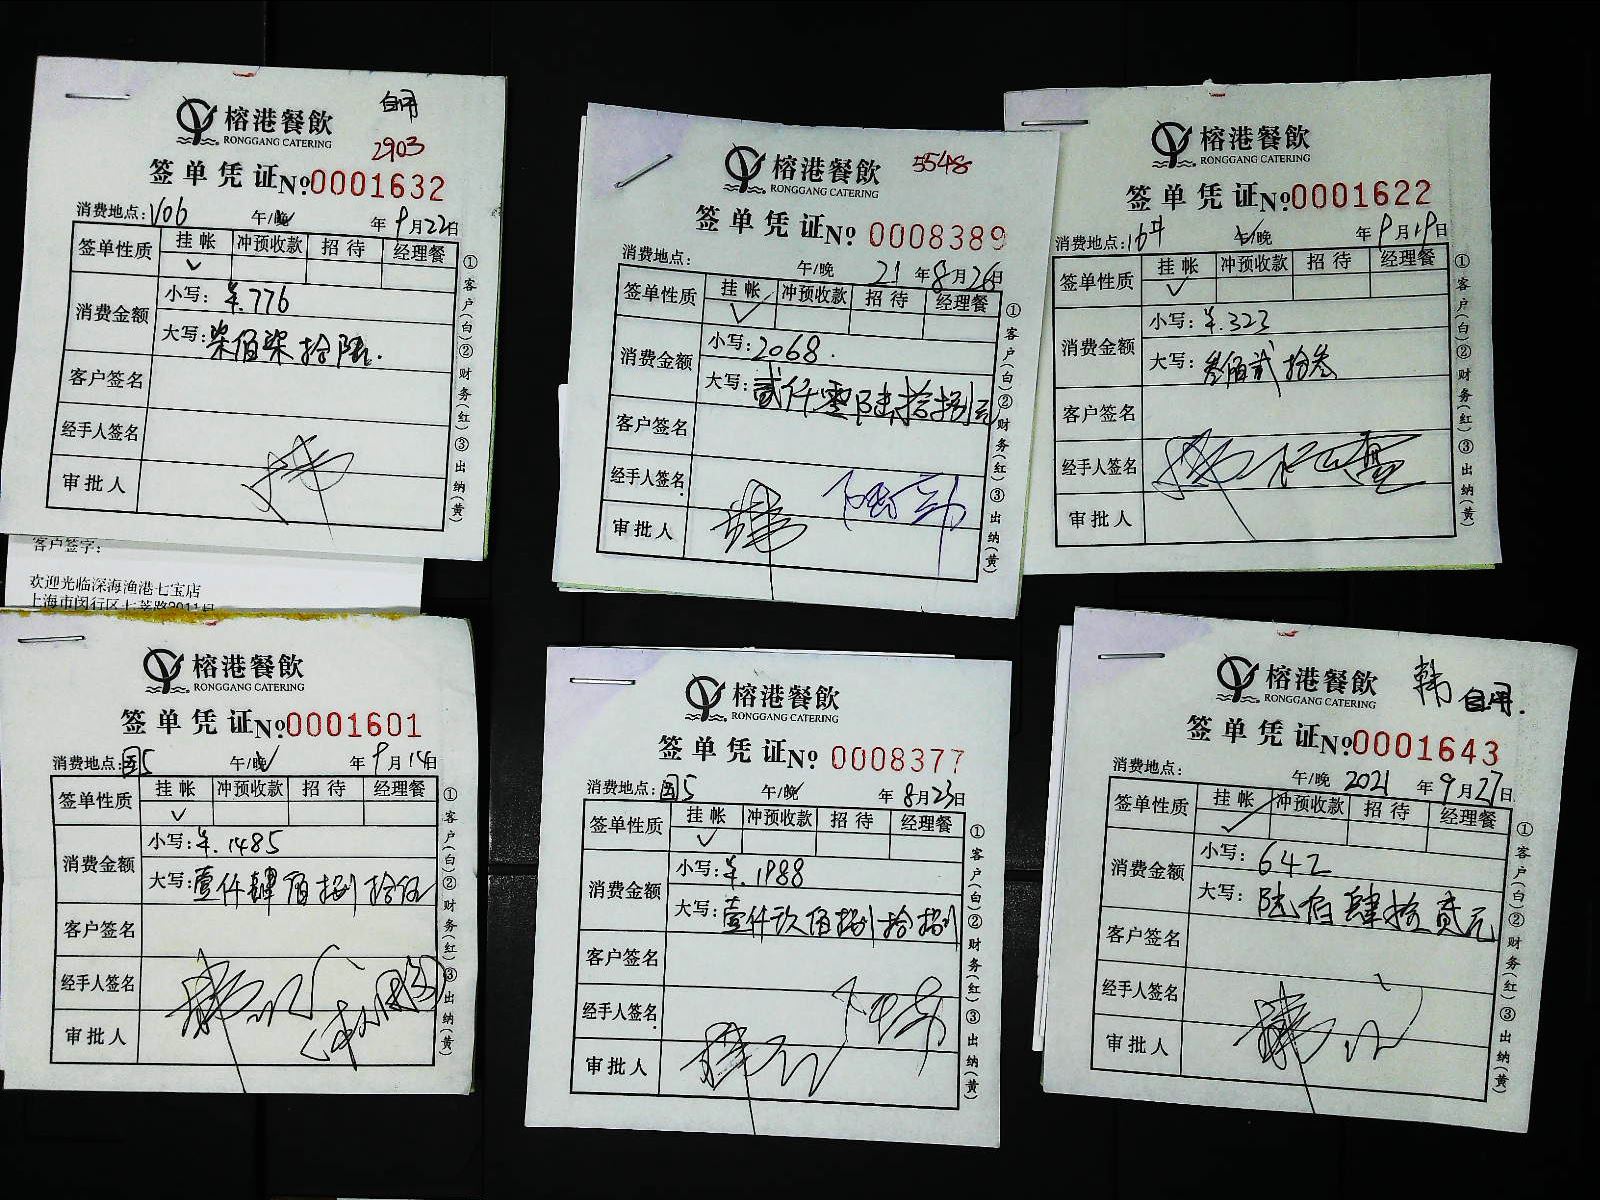 自用
榕港餐飲
RONGGANG CATERING
2903
签单凭证 No 0001632
消费地点: V06 午/晚 年 9月22日
签单性质 挂帐 冲预收款 招待 经理餐
✓
消费金额 小写: ¥.776
大写: 柒佰柒拾陆.
客户签名
经手人签名
审批人
①客户(白)②财务(红)③出纳(黄)
客户签字:
欢迎光临深海渔港七宝店
上海市闵行区七莘路2011号
榕港餐飲 5548
RONGGANG CATERING
签单凭证 No 0008389
消费地点: 午/晚 21年8月26日
签单性质 挂帐 冲预收款 招待 经理餐
✓
消费金额 小写: 2068.
大写: 贰仟零陆拾捌元
客户签名
经手人签名
审批人
①客户(白)②财务(红)③出纳(黄)
榕港餐飲
RONGGANG CATERING
签单凭证 No 0001622
消费地点: 午/晚 年 9月19日
签单性质 挂帐 冲预收款 招待 经理餐
✓
消费金额 小写: ¥.323
大写: 叁佰贰拾叁
客户签名
经手人签名
审批人
①客户(白)②财务(红)③出纳(黄)
榕港餐飲
RONGGANG CATERING
签单凭证 No 0001601
消费地点: 国5 午/晚 年 9月14日
签单性质 挂帐 冲预收款 招待 经理餐
✓
消费金额 小写: ¥.1485
大写: 壹仟肆佰捌拾伍
客户签名
经手人签名
审批人
①客户(白)②财务(红)③出纳(黄)
榕港餐飲
RONGGANG CATERING
签单凭证 No 0008377
消费地点: 国5 午/晚 年 8月23日
签单性质 挂帐 冲预收款 招待 经理餐
✓
消费金额 小写: ¥.1988
大写: 壹仟玖佰捌拾捌
客户签名
经手人签名
审批人
①客户(白)②财务(红)③出纳(黄)
榕港餐飲 韩 自用.
RONGGANG CATERING
签单凭证 No 0001643
消费地点: 午/晚 2021年9月27日
签单性质 挂帐 冲预收款 招待 经理餐
✓
消费金额 小写: 642
大写: 陆佰肆拾贰元
客户签名
经手人签名
审批人
①客户(白)②财务(红)③出纳(黄)